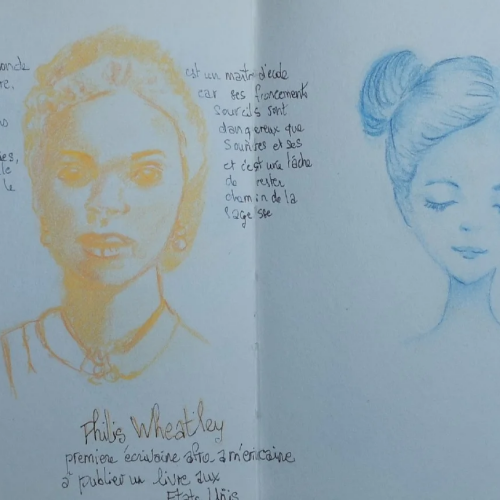 onde
re,
no
ies,
le
le
est un maître d'école
car ses froncements
sourcils sont
dangereux que
sourires et ses
et c'est une tâche
de rester
chemin de la
sagesse
Philis Wheatley
première écrivaine afro américaine
à publier un livre aux
Etats Unis